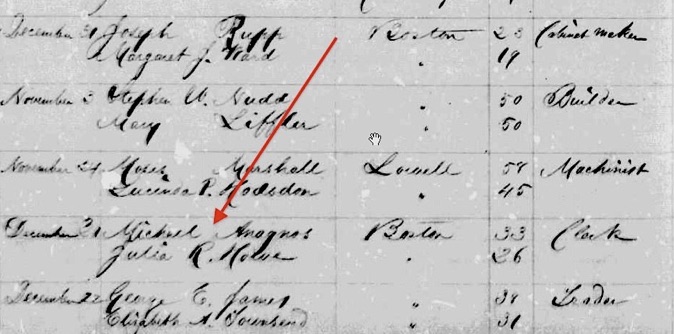 December 31 Joseph Rupp Boston 23 Cabinet maker
Margaret J. Ward " 19
November 3 Stephen W. Nudd " 50 Builder
Mary Liffler " 50
November 24 Moses Marshall Lowell 58 Machinist
Lucinda P. Hodsdon " 45
December 31 Michael Anagnos Boston 33 Clerk
Julia R. Howe " 26
December 22 George E. James " 38 Trader
Elizabeth A. Townsend " 31